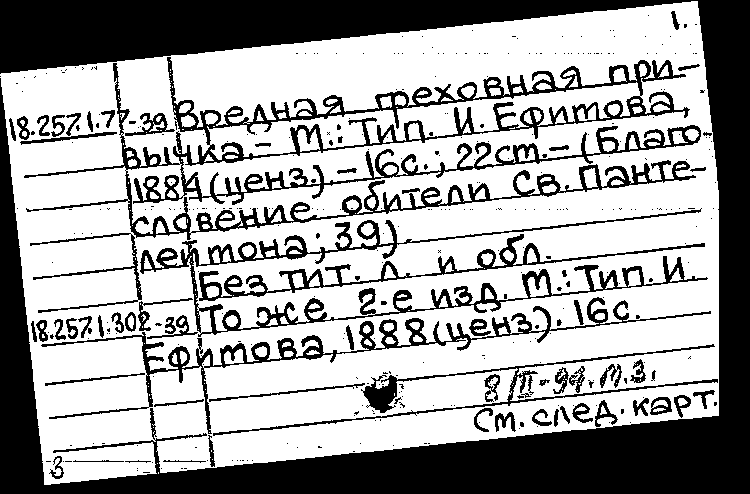 1.
18.257.1.77-39 Вредная греховная при-
вычка.- М.: Тип. И. Ефитова,
1884(ценз.).- 16с.; 22ст.- (Благо-
словение обители Св. Панте-
леймона; 39).
Без тит. л. и обл.
18.257.1.302-39 То же 2-е изд. М.: Тип. И.
Ефимова, 1888(ценз.). 16с.
8/II-94.
См. след. карт.
3